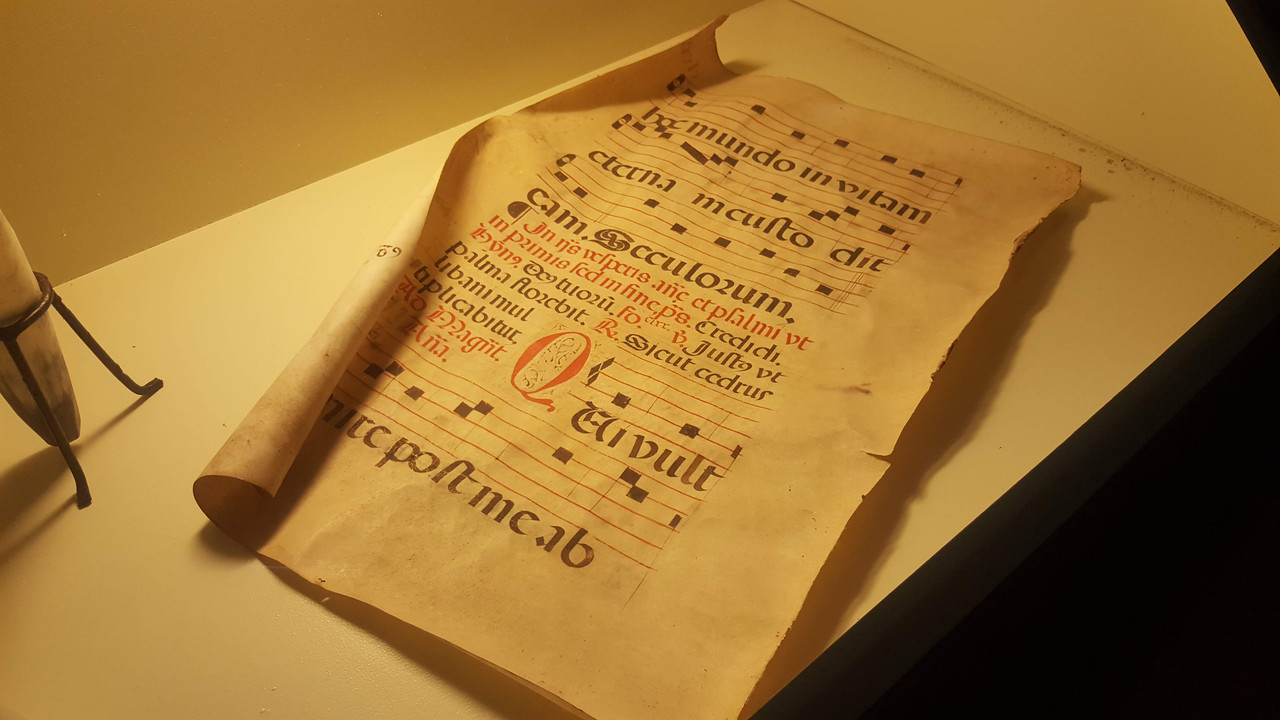 hoc mundo in vitam
eterna m custo dit
eam. Seculorum.
In ijs vesperis. añe et psalmi vt
in primis sed in fine ps. Credidi.
Hyñ9. Deus tuorũ. fo. v̇. Just9 vt
palma florebit. R. Sicut cedrus
libani mul
tiplicabitur.
Ad Magñt
Aña.
Qui vult
nire post me ab